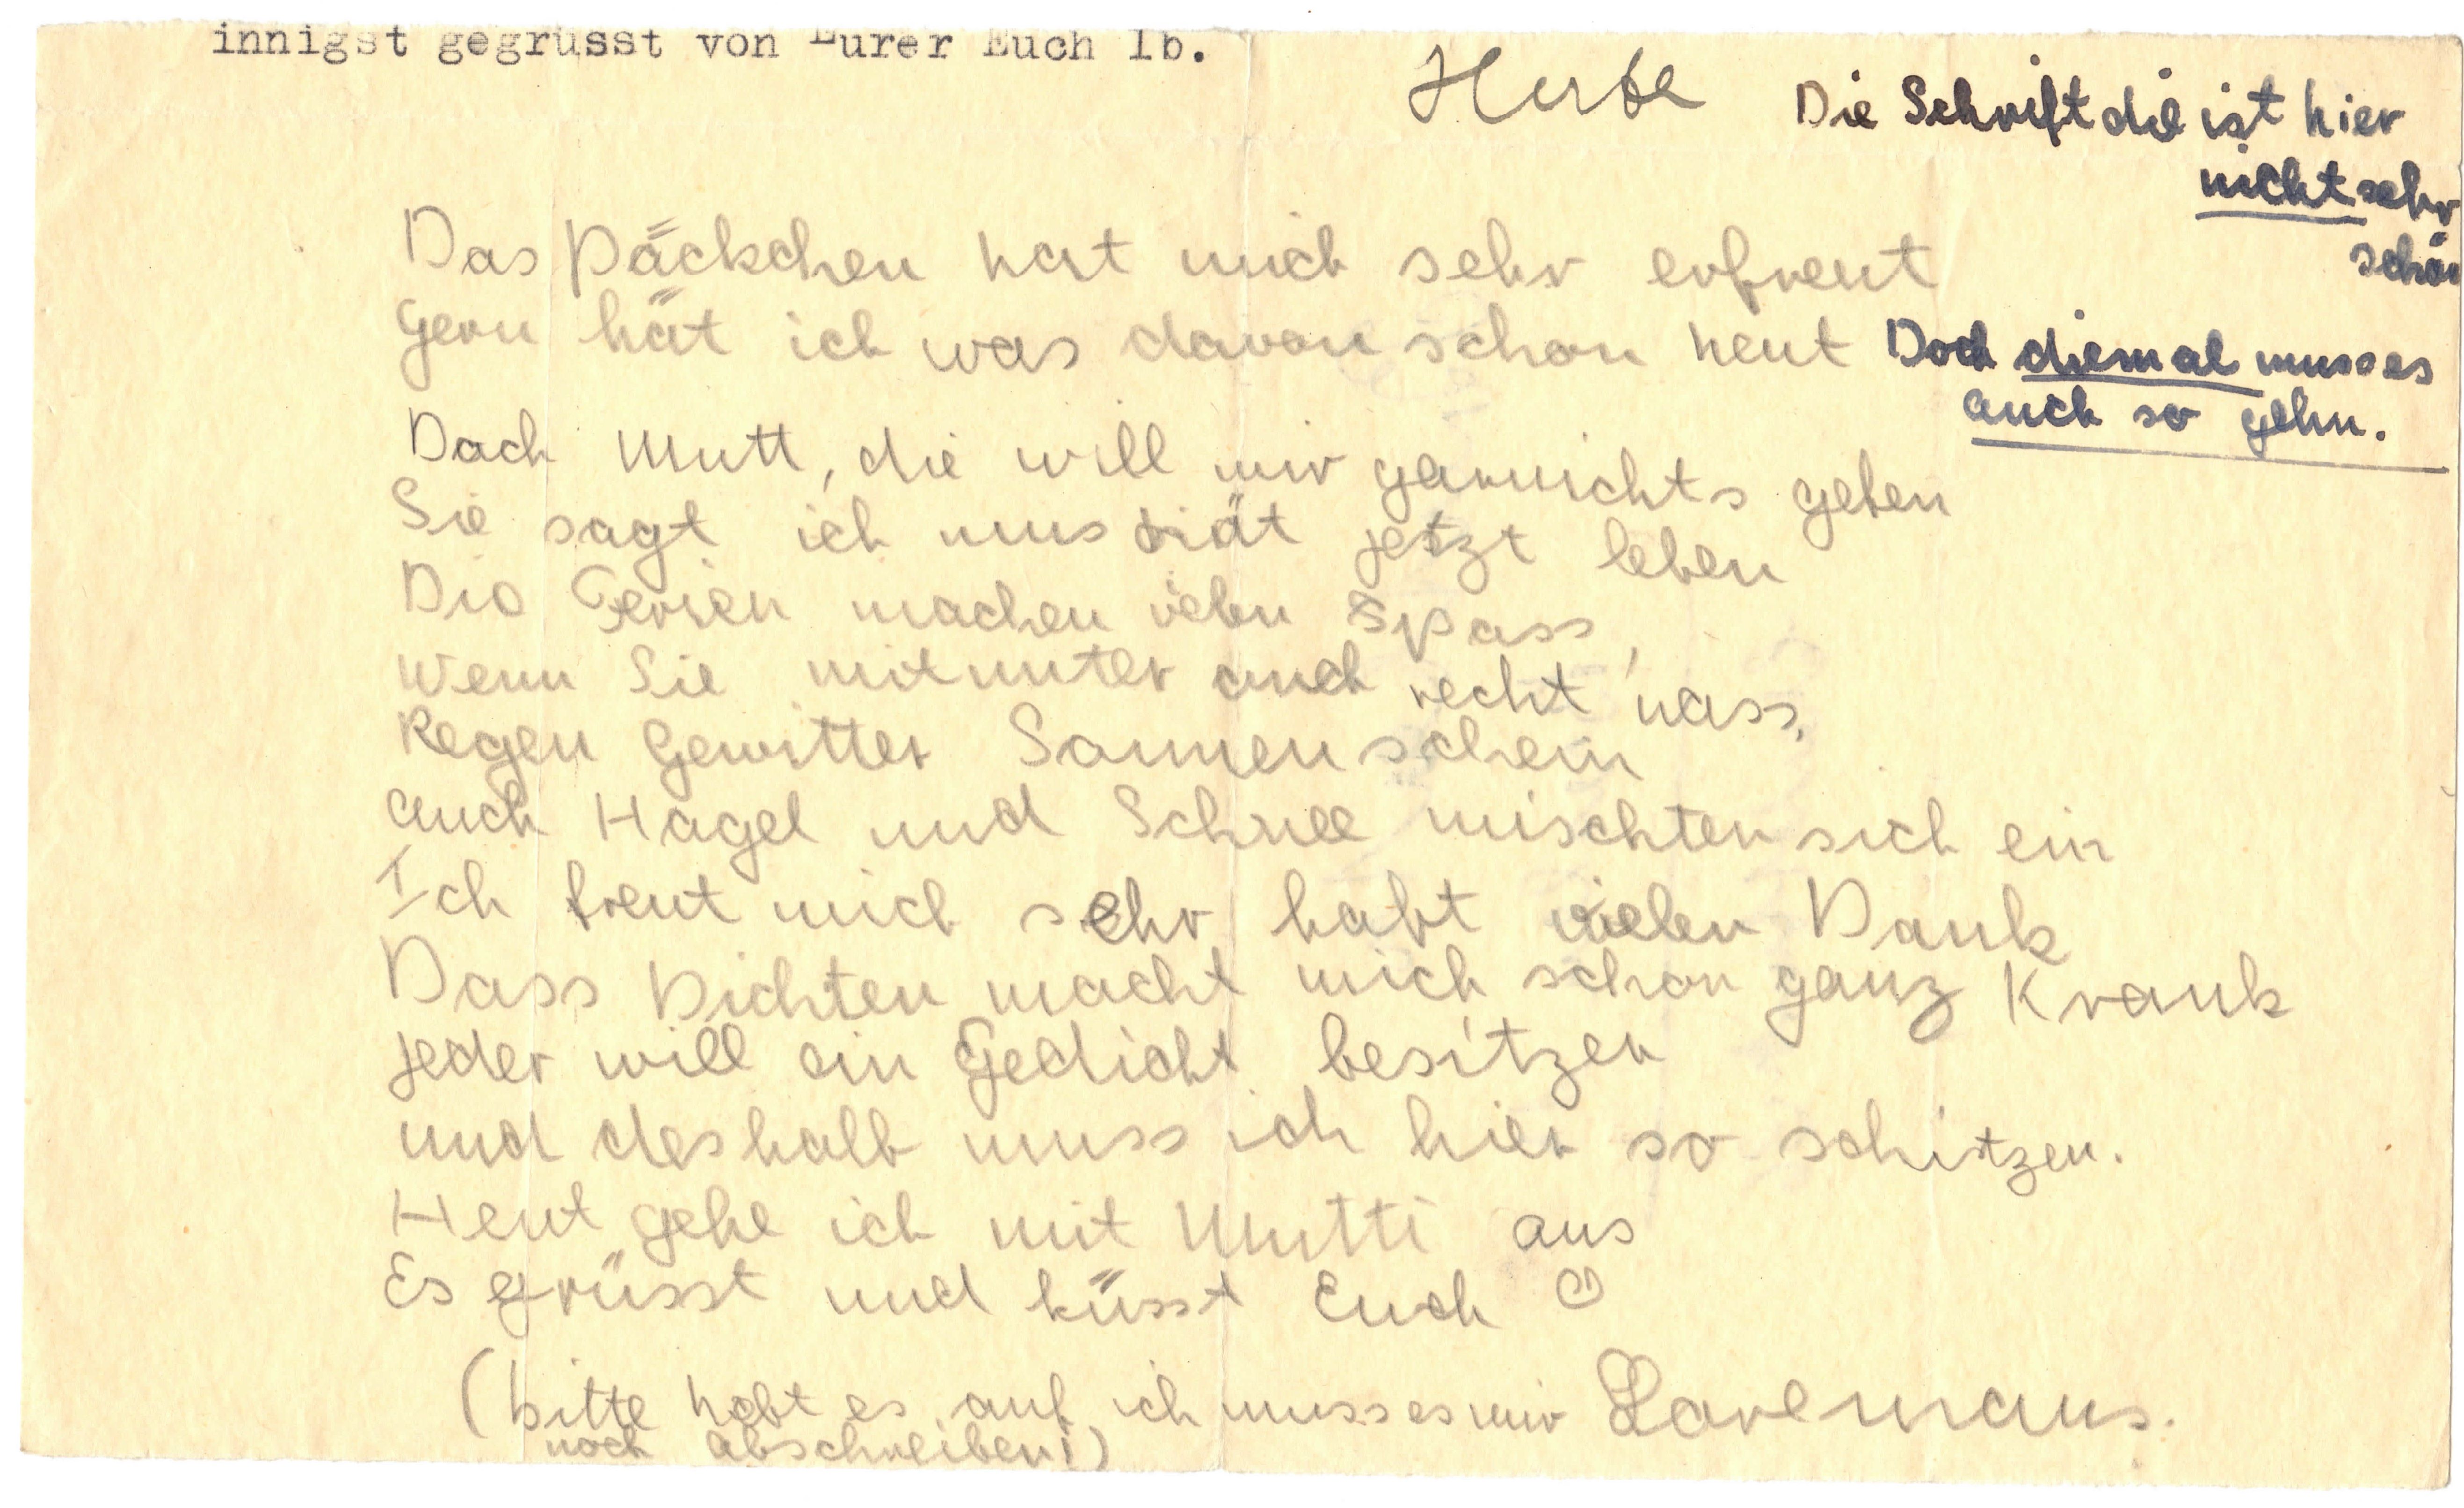 innigst gegrüsst von Eurer Euch lb.
Herta
Die Schrift die ist hier
nicht sehr
schön
Doch diemal muss es
auch so gehn.
Das Päckchen hat mich sehr erfreut
Gern hät ich was davon schon heut
Doch Mutt, die will mir garnichts geben
Sie sagt ich mus diät jetzt leben
Die Ferien machen vieln Spass,
Wenn Sie mitunter auch recht nass,
Regen Gewitter Sonnenschein
auch Hagel und Schnee mischten sich ein
Ich freut mich sehr habt vielen Dank
Dass Dichten macht mich schon ganz Krank
jeder will ein Gedicht besitzen
und deshalb muss ich hier so schitzen.
Heut gehe ich mit Mutti aus
Es grüsst und küsst Euch
Loremaus.
(bitte hebt es auf ich muss es mir
noch abschreiben!)